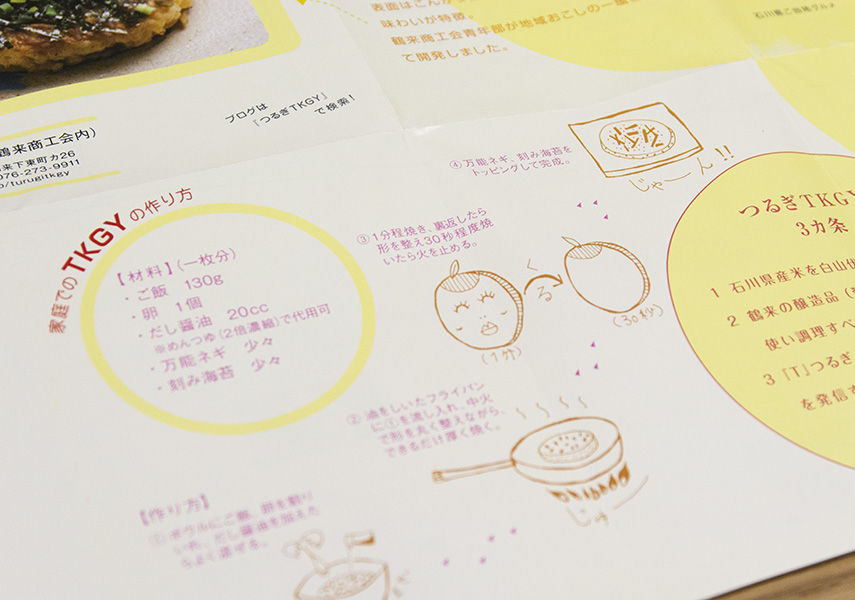 表面はこんが
味わいが特徴。
鶴来商工会青年部が地域おこしの一環
て開発しました。
石川県ご当地グルメ
ブログは
『つるぎTKGY』
で検索!
鶴来商工会内)
来下東町カ26
076-273-9911
p/turugitkgy
家庭でのTKGYの作り方
【材料】(一枚分)
・ご飯 130g
・卵 1個
・だし醤油 20cc
※めんつゆ(2倍濃縮)で代用可
・万能ネギ 少々
・刻み海苔 少々
【作り方】
① ボウルにご飯、卵を割り
いれ、だし醤油を加えた
らよく混ぜる。
② 油をしいたフライパン
に①を流し入れ、中火
で形を丸く整えながら、
できるだけ厚く焼く。
じゅー
③ 1分程焼き、裏返したら
形を整え30秒程度焼
いたら火を止める。
くる
(1分)
(30秒)
④ 万能ネギ、刻み海苔を
トッピングして完成。
じゃーん!!
つるぎTKGY
3カ条
1 石川県産米を白山
2 鶴来の醸造品(
使い調理すべ
3 「T」つるぎ
を発信す